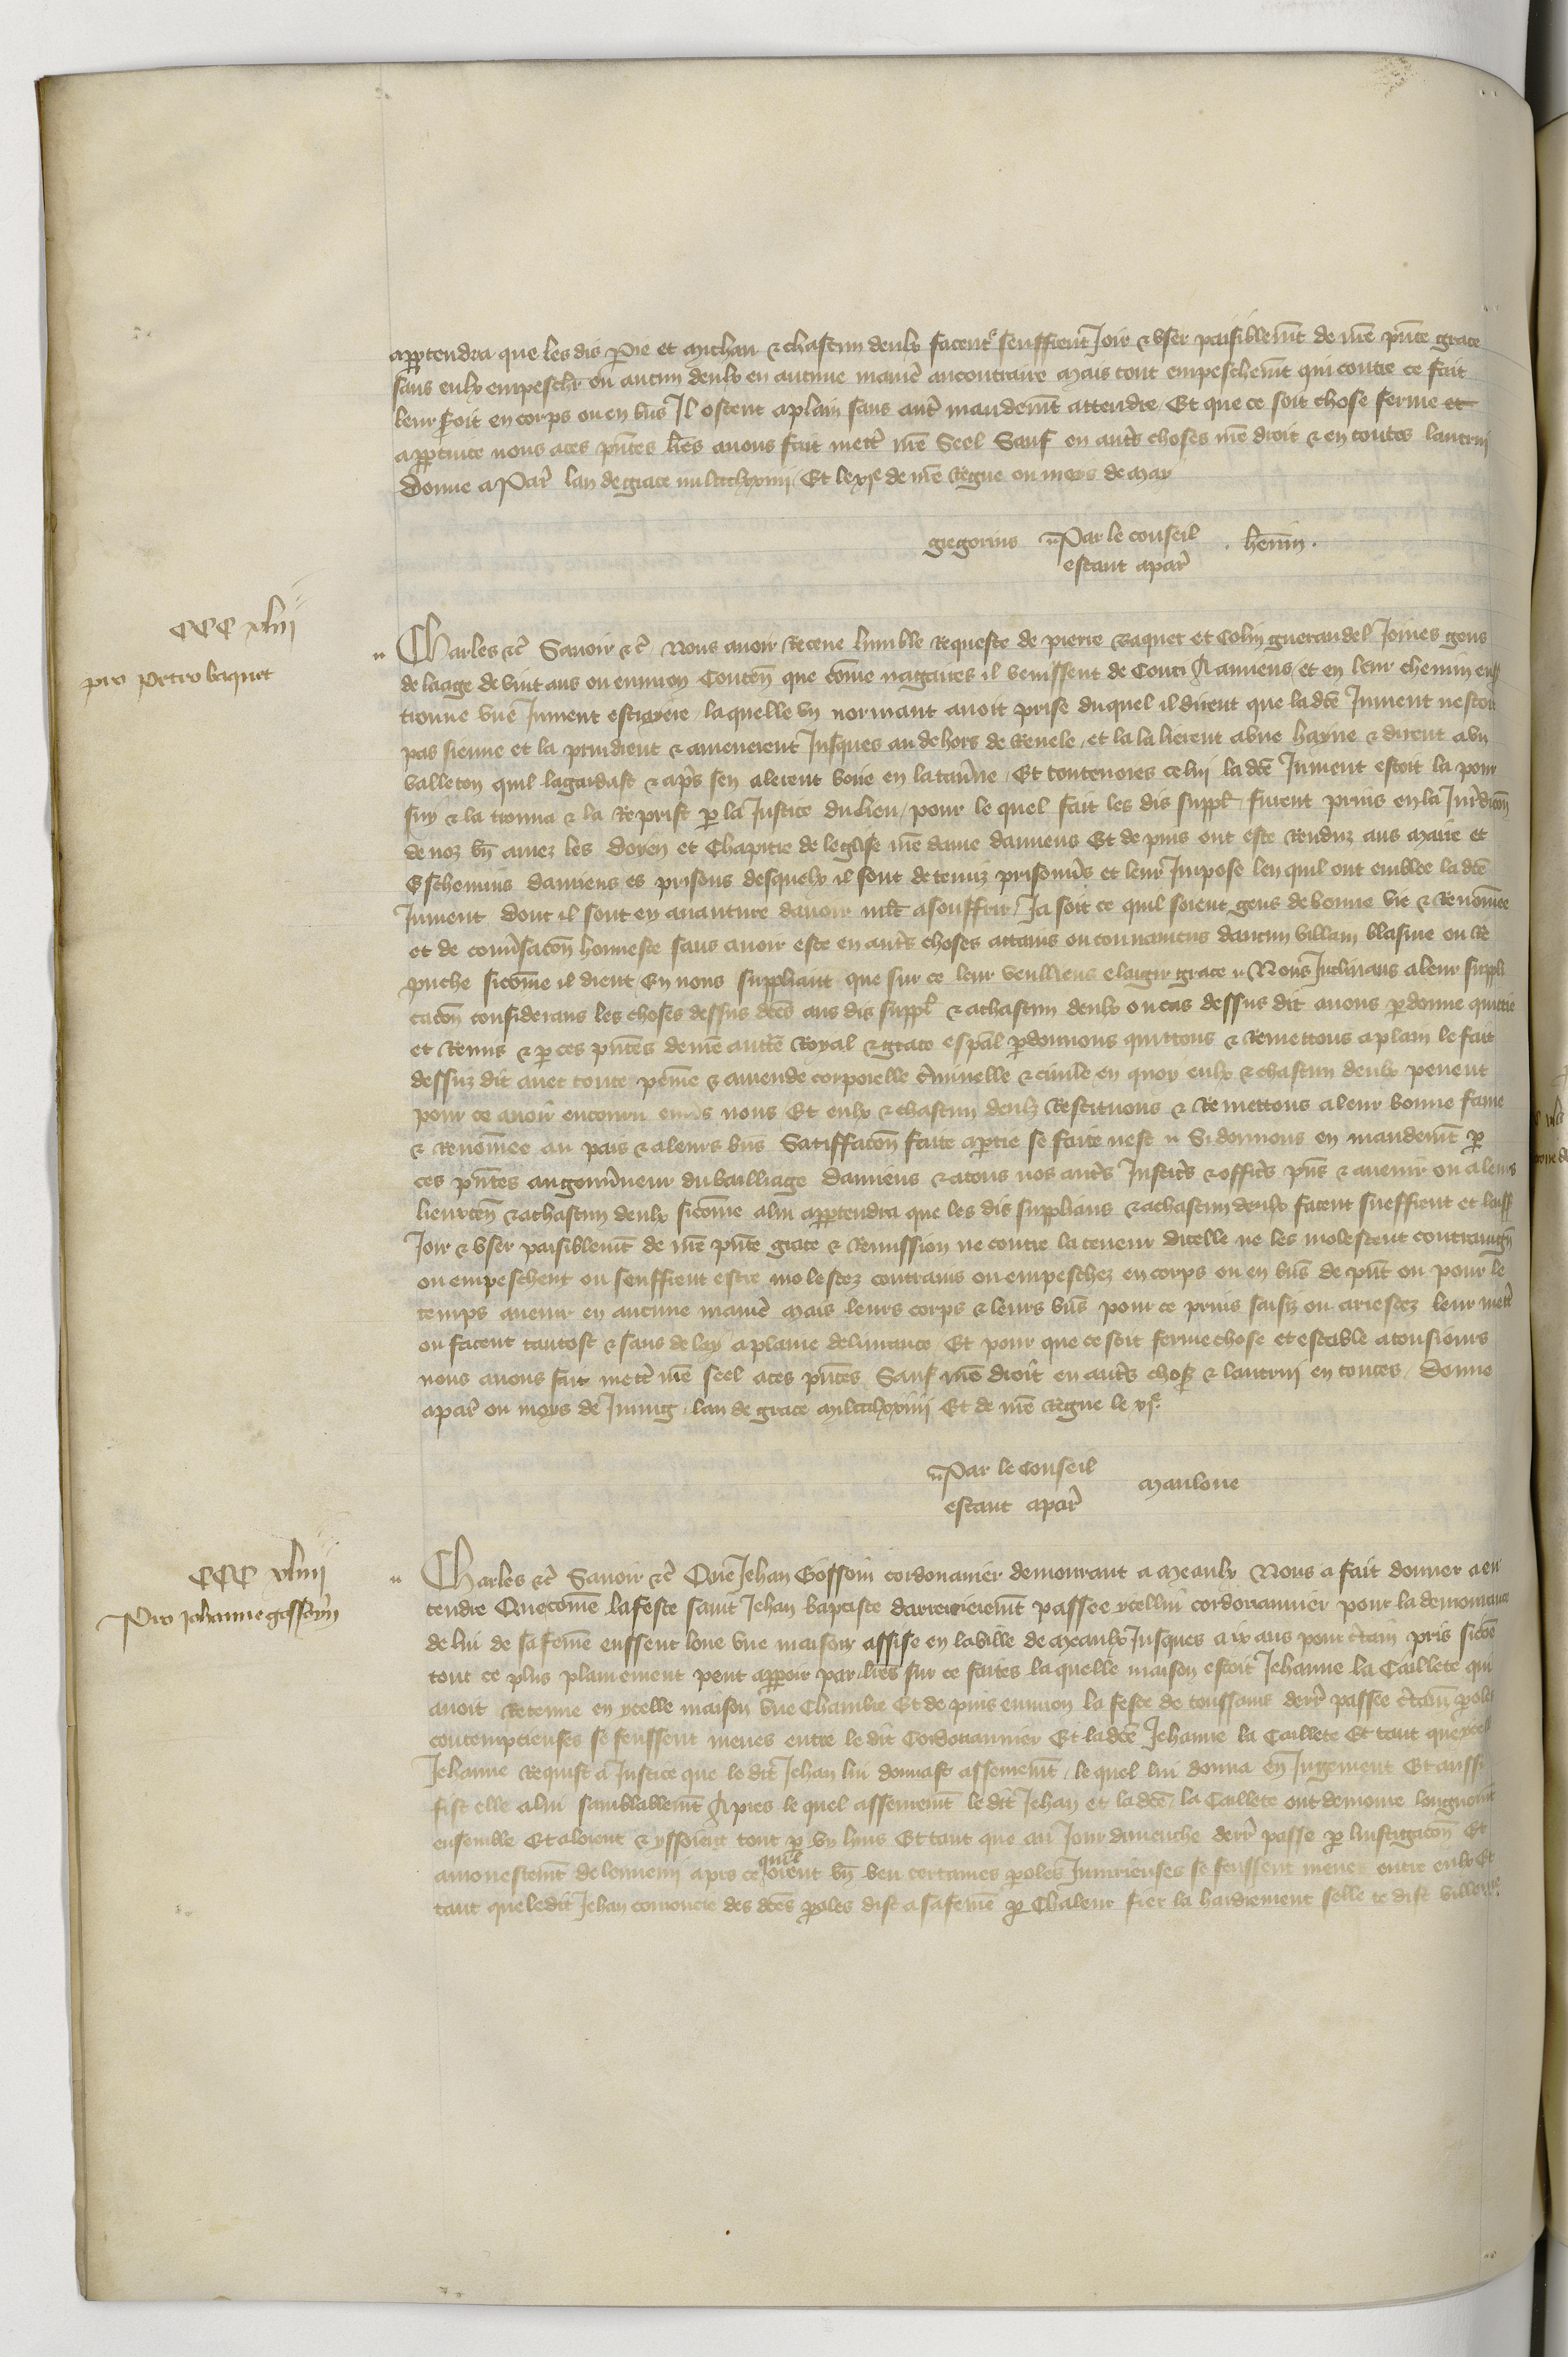 appartendra que les dis P̃re et Michau & chascun deulx facent & seuffrent Joir & user paisiblemt de nr̃e pñte grace
sans eulx empeschr ou aucun deulx en aucune manie aucontraire mais tout empeschemt qui contre ce fait
leur soit en corps ou en biẽs Il ostent aplain sans autr mandemt attendre / Et que ce soit chose ferme et
nous aces pñtes lr̃es auons fait mettr nr̃e Seel Sauf en autrs choses nr̃e droit & en toutes lautrui
donne a Par̃ lan de grace mil ccclxxiiii / Et le xie de nr̃e Regne ou moys de May
gregorius Par le conseil estant apar̃ . henin .
CCC xliii
pro petro baquet
Charles &c̃ Sauoir &c̃ / Nous auoir Receue lumble Requeste de pierre baquet et Colin guerandel Joines gens
de laage de vint ans ou enuiron Conten̄ que com̃e nagaires il venissent de Couci A amiens / et en leur chemin euss
trouue vne Jument estraiere / laquelle vn normant auoit prise duquel il dirent que la dc̃e Jument nestoit
pas sienne et la prindrent & amenerent Jusques au dehors de Neele / et la la lierent a vne haye & dirent a vn
valleton quil lagardast & ap̃s sen alerent boire en la tau̾ne / Et toutenoies celui la dc̃e Jument estoit la pour
suy & la trouua & la Reprist p̱ la Justice du lieu / pour le quel fait les dis suppl̃ furent prins en la Jur̃dic̃on
de noz bñ amez les doyen et Chapitre de leglise nr̃e dame damiens Et depuis ont este Renduz aus Maire et
Escheuins damiens es prisons desquelx il sont detenuz prisonn̾s et leur Impose len quil ont emblee la dc̃e
Jument dont il sont en auanture dauoir mlt̃ asouffrir / Ja soit ce quil soient gens de bonne vie & Renom̃ee
et de conu̾sac̃on honneste sans auoir este en autrs choses attains ou conuaincus daucun villain blasme ou Re
pruche sicom̃e il dient / En nous suppliant que sur ce leur veullens elargir grace Nous Inclinans a leur suppli
cac̃on considerans les choses dessus dc̃es aus dis suppl̃ & achascun deulx ou cas dessus dit auons p̱donne quictie
et Remis & p̱ ces pñtes de nr̃e autte Royal & grace esp̃al p̱donnons quittons & Remettons a plain le fait
dessuz dit auec toute peine & amende corporelle c̾minelle & ciuile en quoy eulx & chascun deulx peuent
pour ce auoir encouru enu̾s nous Et eulx & chascun deulz Restituons & Remettons a leur bonne fame
& Renom̃ee au pais & a leurs biñs Satiffac̃on faite a p̱tie se faite nest Si donnons en mandemt p̱
ces pñtes au gouu̾neur du bailliage damiens & atous nos autrs Justic̾s & offic̾s pñs & auenir ou a leurs
lieuxten̄ & achascun deulx sicom̃e a lui appartendra que les dis supplians & achascun deulx facent sueffrent et laiss
Joir & vser paisiblemt de nr̃e pñte grace & Remission ne contre la teneur dicelle ne les molestent contraign̄
ou empeschent ou seuffrent estre molestez contrains ou empeschez en corps ou en biñs de pñt ou pour le
temps auenir en aucune manie̾ Mais leurs corps & leurs biñs pour ce prins saisiz ou arrestez leur mett̾
ou facent tantost & sans delay a plaine deliurance / Et pour que ce soit ferme chose et estable atousiours
nous auons fait mett̾ nr̃e seel aces pñtes Sauf nr̃e droit en autrs choses & lautrui en toutes / donne
apar̃ ou moys de Juing / lan de grace mil ccclxxiiii Et de nr̃e Regne le xje
Par le Conseil estant apar̃ Mauloue
CCC xliiii
Pro Johanne gossoyn
Charles &c̃ Sauoir &c̃ Que Jehan Gossoin cordouanier demourant a Meaulx Nous a fait donner a en
tendre Que com̃e la feste saint Jehan baptiste darrenieremt passee ycellui cordouannier pour la demourance
de lui de sa fem̃e eussent loue vne maison assise en la ville de Meaulx Jusques a ix ans pour c̾tain pris sicom̃e
tout ce plus plainement peut apparoir par lr̃es sur ce faites la quelle maison estoit Jehanne la Caillete qui
auoit Retenue en ycelle maison vne Chambre Et depuis enuiron la feste de toussains derr̃ passee c̾taines p̱oles
contemptieuses se feussent meues entre le dit Cordouannier Et la dc̃e Jehanne la Caillete Et tant que ycelle
Jehanne Requist a Justice que le dit Jehan lui donnast asseuremt / le quel lui donna en Jugement Et aussi
fist elle a lui samblablemt Apres le quel asseuremt le dit Jehan et la dc̃e la Caillete ont demoure longuemt
ensemble Et aloient & yssoient tout p̱ vn huis Et tant que au Jour dimenche derr̃ passe p̱ linstigac̃on Et
amonestemt de lennemi apres ce quil orent bñ beu certaines p̱oles Iniurieuses se feussent meues entre eulx Et
tant que le dit Jehan couroucie des dc̃es p̱oles dist a sa fem̃e p̱ Chaleur fier la hardiement selle te dist villenie